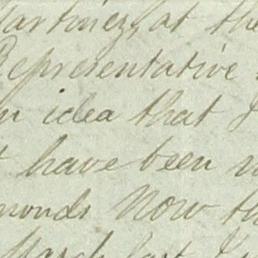 Martinez, at the
Representative
an idea that I
have been
monds Now th
March last I